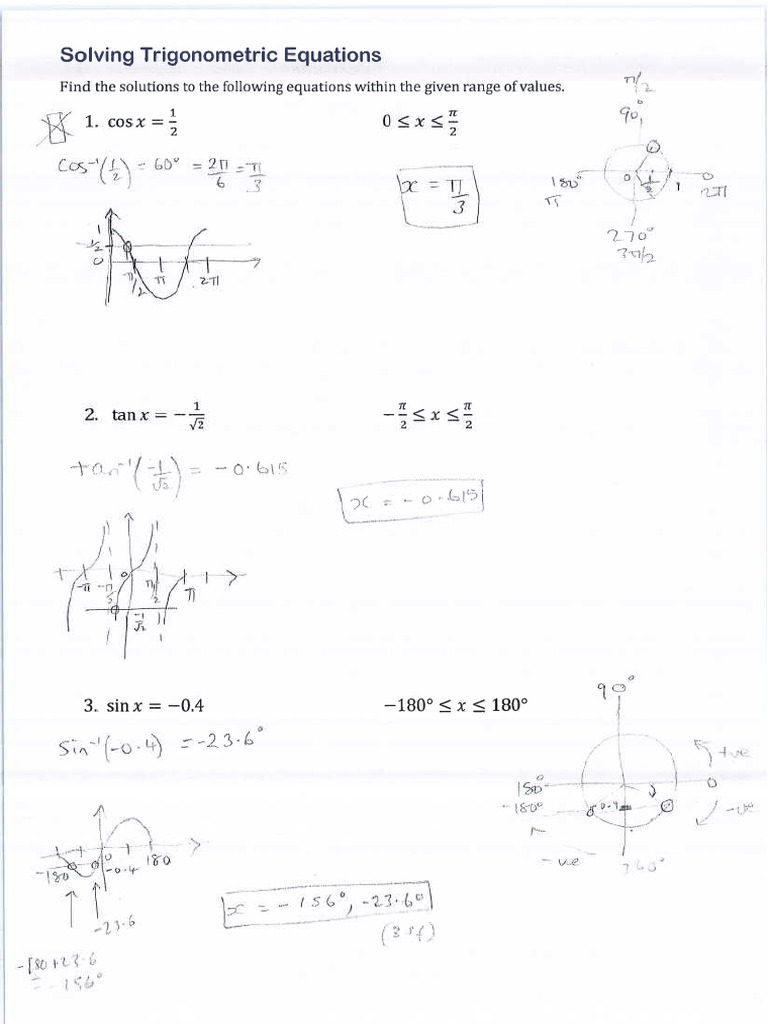 Solving Trigonometric Equations
Find the solutions to the following equations within the given range of values.
π/2
90°
1. cos x = 1/2
0 ≤ x ≤ π/2
cos⁻¹(1/2) = 60° = 2π/6 = π/3
x = π/3
180° 0 1/2 1 0
π 2π
270°
3π/2
1
1/2
0
π/2 π 2π
2. tan x = −1/√2
−π/2 ≤ x ≤ π/2
tan⁻¹(-1/√2) = -0.615
x = -0.615
-π -π/2 0 π/2 π
-1/√2
3. sin x = −0.4
−180° ≤ x ≤ 180°
90°
sin⁻¹(-0.4) = -23.6°
+ve
180° 0
-180° 0.4 -ve
-ve 360°
-180 0 -0.4 180
-23.6
x = -156°, -23.6°
(3 sf)
-180+23.6
= -156°